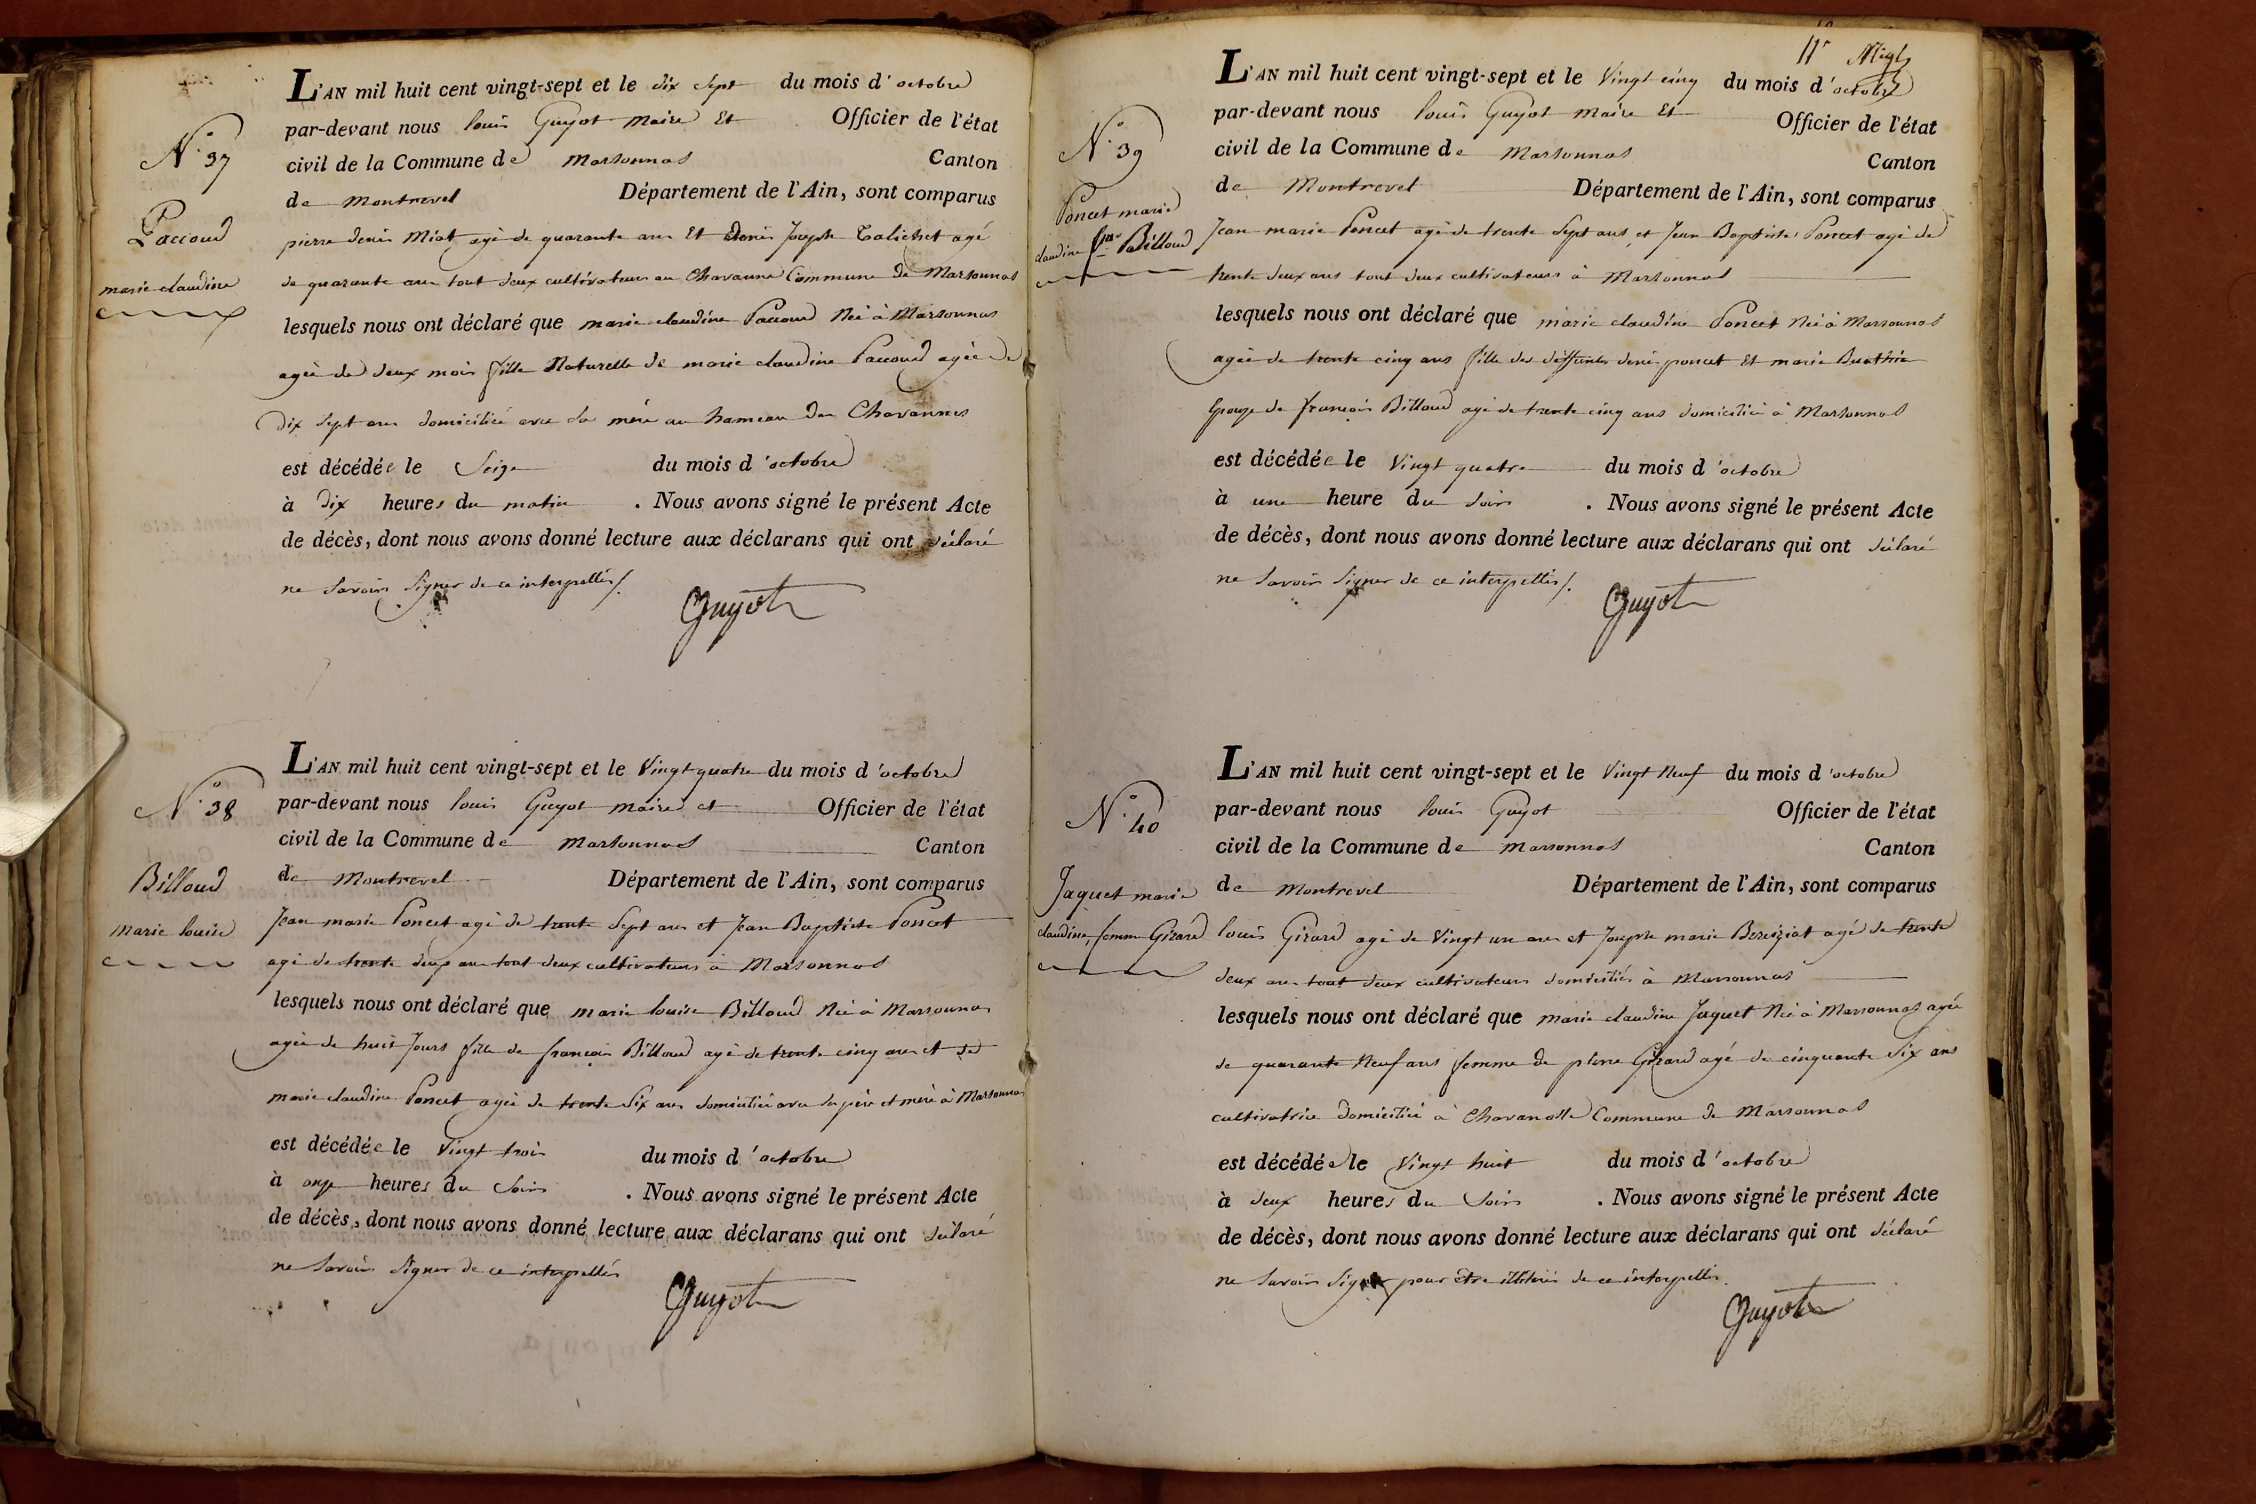 N.° 37
Paccoud
marie claudine
L'AN mil huit cent vingt-sept et le dix sept du mois d'octobre
par-devant nous louis Guyot maire Et Officier de l'état
civil de la Commune de Marsonnas Canton
de Montrevel Département de l'Ain, sont comparus
pierre denis Miat agé de quarante ans Et denis Joseph Calichet agé
de quarante ans tout deux cultivateurs au Chavanne Commune de Marsonnas
lesquels nous ont déclaré que marie claudine Paccoud Née à Marsonnas
agée de deux mois fille Naturelle de marie claudine Paccoud agée de
dix sept ans domiciliée avec sa mere au hameau des Chavannes
est décédée le Seize du mois d'octobre
à dix heures du matin . Nous avons signé le présent Acte
de décès, dont nous avons donné lecture aux déclarans qui ont déclaré
ne savoir signer de ce interpellés /.
Guyot
N.° 38
Billoud
marie louise
L'AN mil huit cent vingt-sept et le Vingt quatre du mois d'octobre
par-devant nous louis Guyot maire et Officier de l'état
civil de la Commune de Marsonnas Canton
de Montrevel Département de l'Ain, sont comparus
Jean marie Poncet agé de trente Sept ans et Jean Baptiste Poncet
agé de trente deux ans tout deux cultivateurs à Marsonnas
lesquels nous ont déclaré que marie louise Billoud Née à Marsonnas
agée de huit Jours fille de françois Billoud agé de trente cinq ans et de
marie claudine Poncet agée de trente Six ans domiciliée avec ses père et mère à Marsonnas
est décédée le Vingt trois du mois d'octobre
à onze heures du Soir . Nous avons signé le présent Acte
de décès, dont nous avons donné lecture aux déclarans qui ont déclaré
ne savoir signer de ce interpellés
Guyot
11e
N.° 39
Poncet marie
claudine fme Billoud
L'AN mil huit cent vingt-sept et le Vingt cinq du mois d'octobre
par-devant nous louis Guyot maire Et Officier de l'état
civil de la Commune de Marsonnas Canton
de Montrevel Département de l'Ain, sont comparus
Jean marie Poncet agé de trente Sept ans et Jean Baptiste Poncet agé de
trente deux ans tout deux cultivateurs à Marsonnas
lesquels nous ont déclaré que marie claudine Poncet Née à Marsonnas
agée de trente cinq ans fille des deffunts denis poncet Et marie Buathier
Epouze de françois Billoud agé de trente cinq ans domiciliée à Marsonnas
est décédée le Vingt quatre du mois d'octobre
à une heure du Soir . Nous avons signé le présent Acte
de décès, dont nous avons donné lecture aux déclarans qui ont déclaré
ne savoir signer de ce interpellés /.
Guyot
N.° 40
Jaquet marie
claudine, femme Girard
L'AN mil huit cent vingt-sept et le Vingt Neuf du mois d'octobre
par-devant nous louis Guyot Officier de l'état
civil de la Commune de Marsonnas Canton
de Montrevel Département de l'Ain, sont comparus
louis Girard agé de Vingt un ans et Joseph marie Bereiziat agé de trente
deux ans tout deux cultivateurs domiciliés à Marsonnas
lesquels nous ont déclaré que marie claudine Jaquet Née à Marsonnas agée
de quarante Neuf ans femme de pierre Girard agé de cinquante Six ans
cultivatrice domiciliée à Commune de Marsonnas
est décédée le Vingt huit du mois d'octobre
à deux heures du Soir . Nous avons signé le présent Acte
de décès, dont nous avons donné lecture aux déclarans qui ont déclaré
ne savoir signer pour être illitérés de ce interpellés.
Guyot